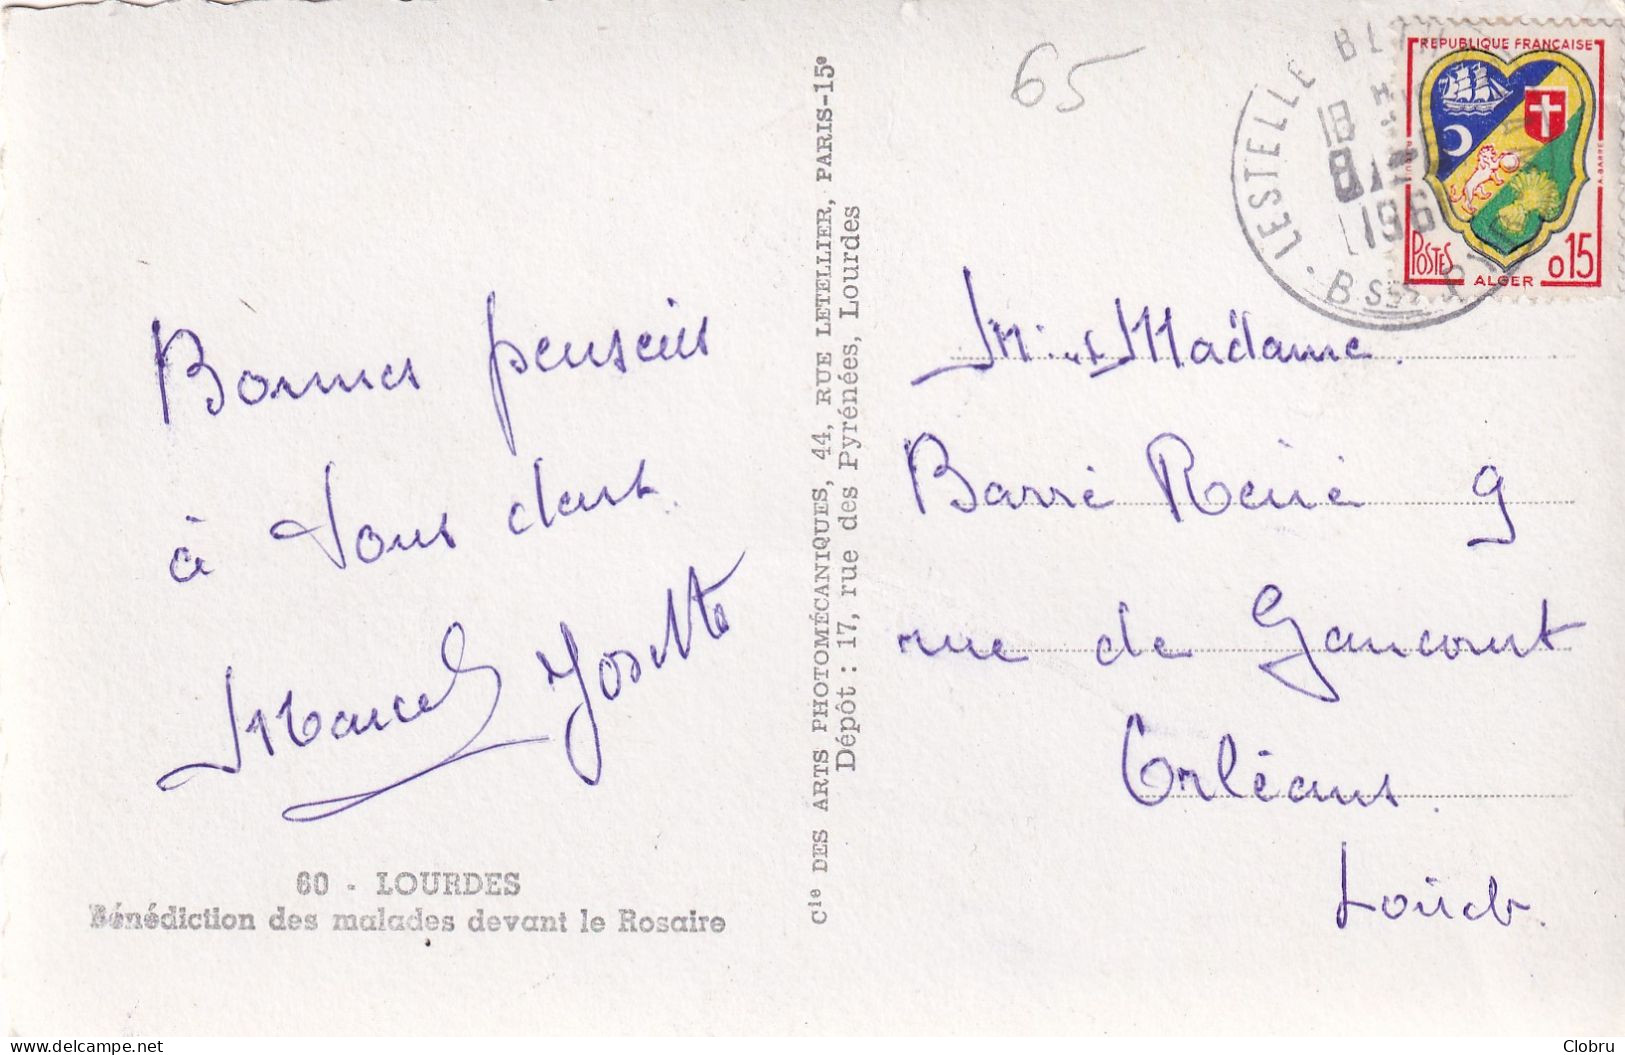 65
LESTELLE
18 H
8-
196
Bses PYR
REPUBLIQUE FRANÇAISE
A. BARRE
POSTES
0,15
ALGER
Bonnes penseiis
à tous deux.
Marcel Josette
60 - LOURDES
Bénédiction des malades devant le Rosaire
Cie DES ARTS PHOTOMÉCANIQUES, 44, RUE LETELLIER, PARIS-15e
Dépôt : 17, rue des Pyrénées, Lourdes
Mr et Madame.
Barré René 9
rue de Gaucourt
Orléans.
Loiret.
Clobru